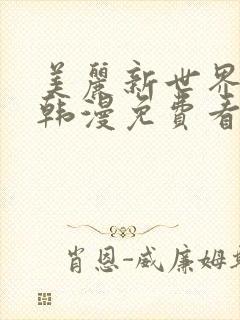 美麗新世界
韩漫免費看
肖恩-威廉姆斯